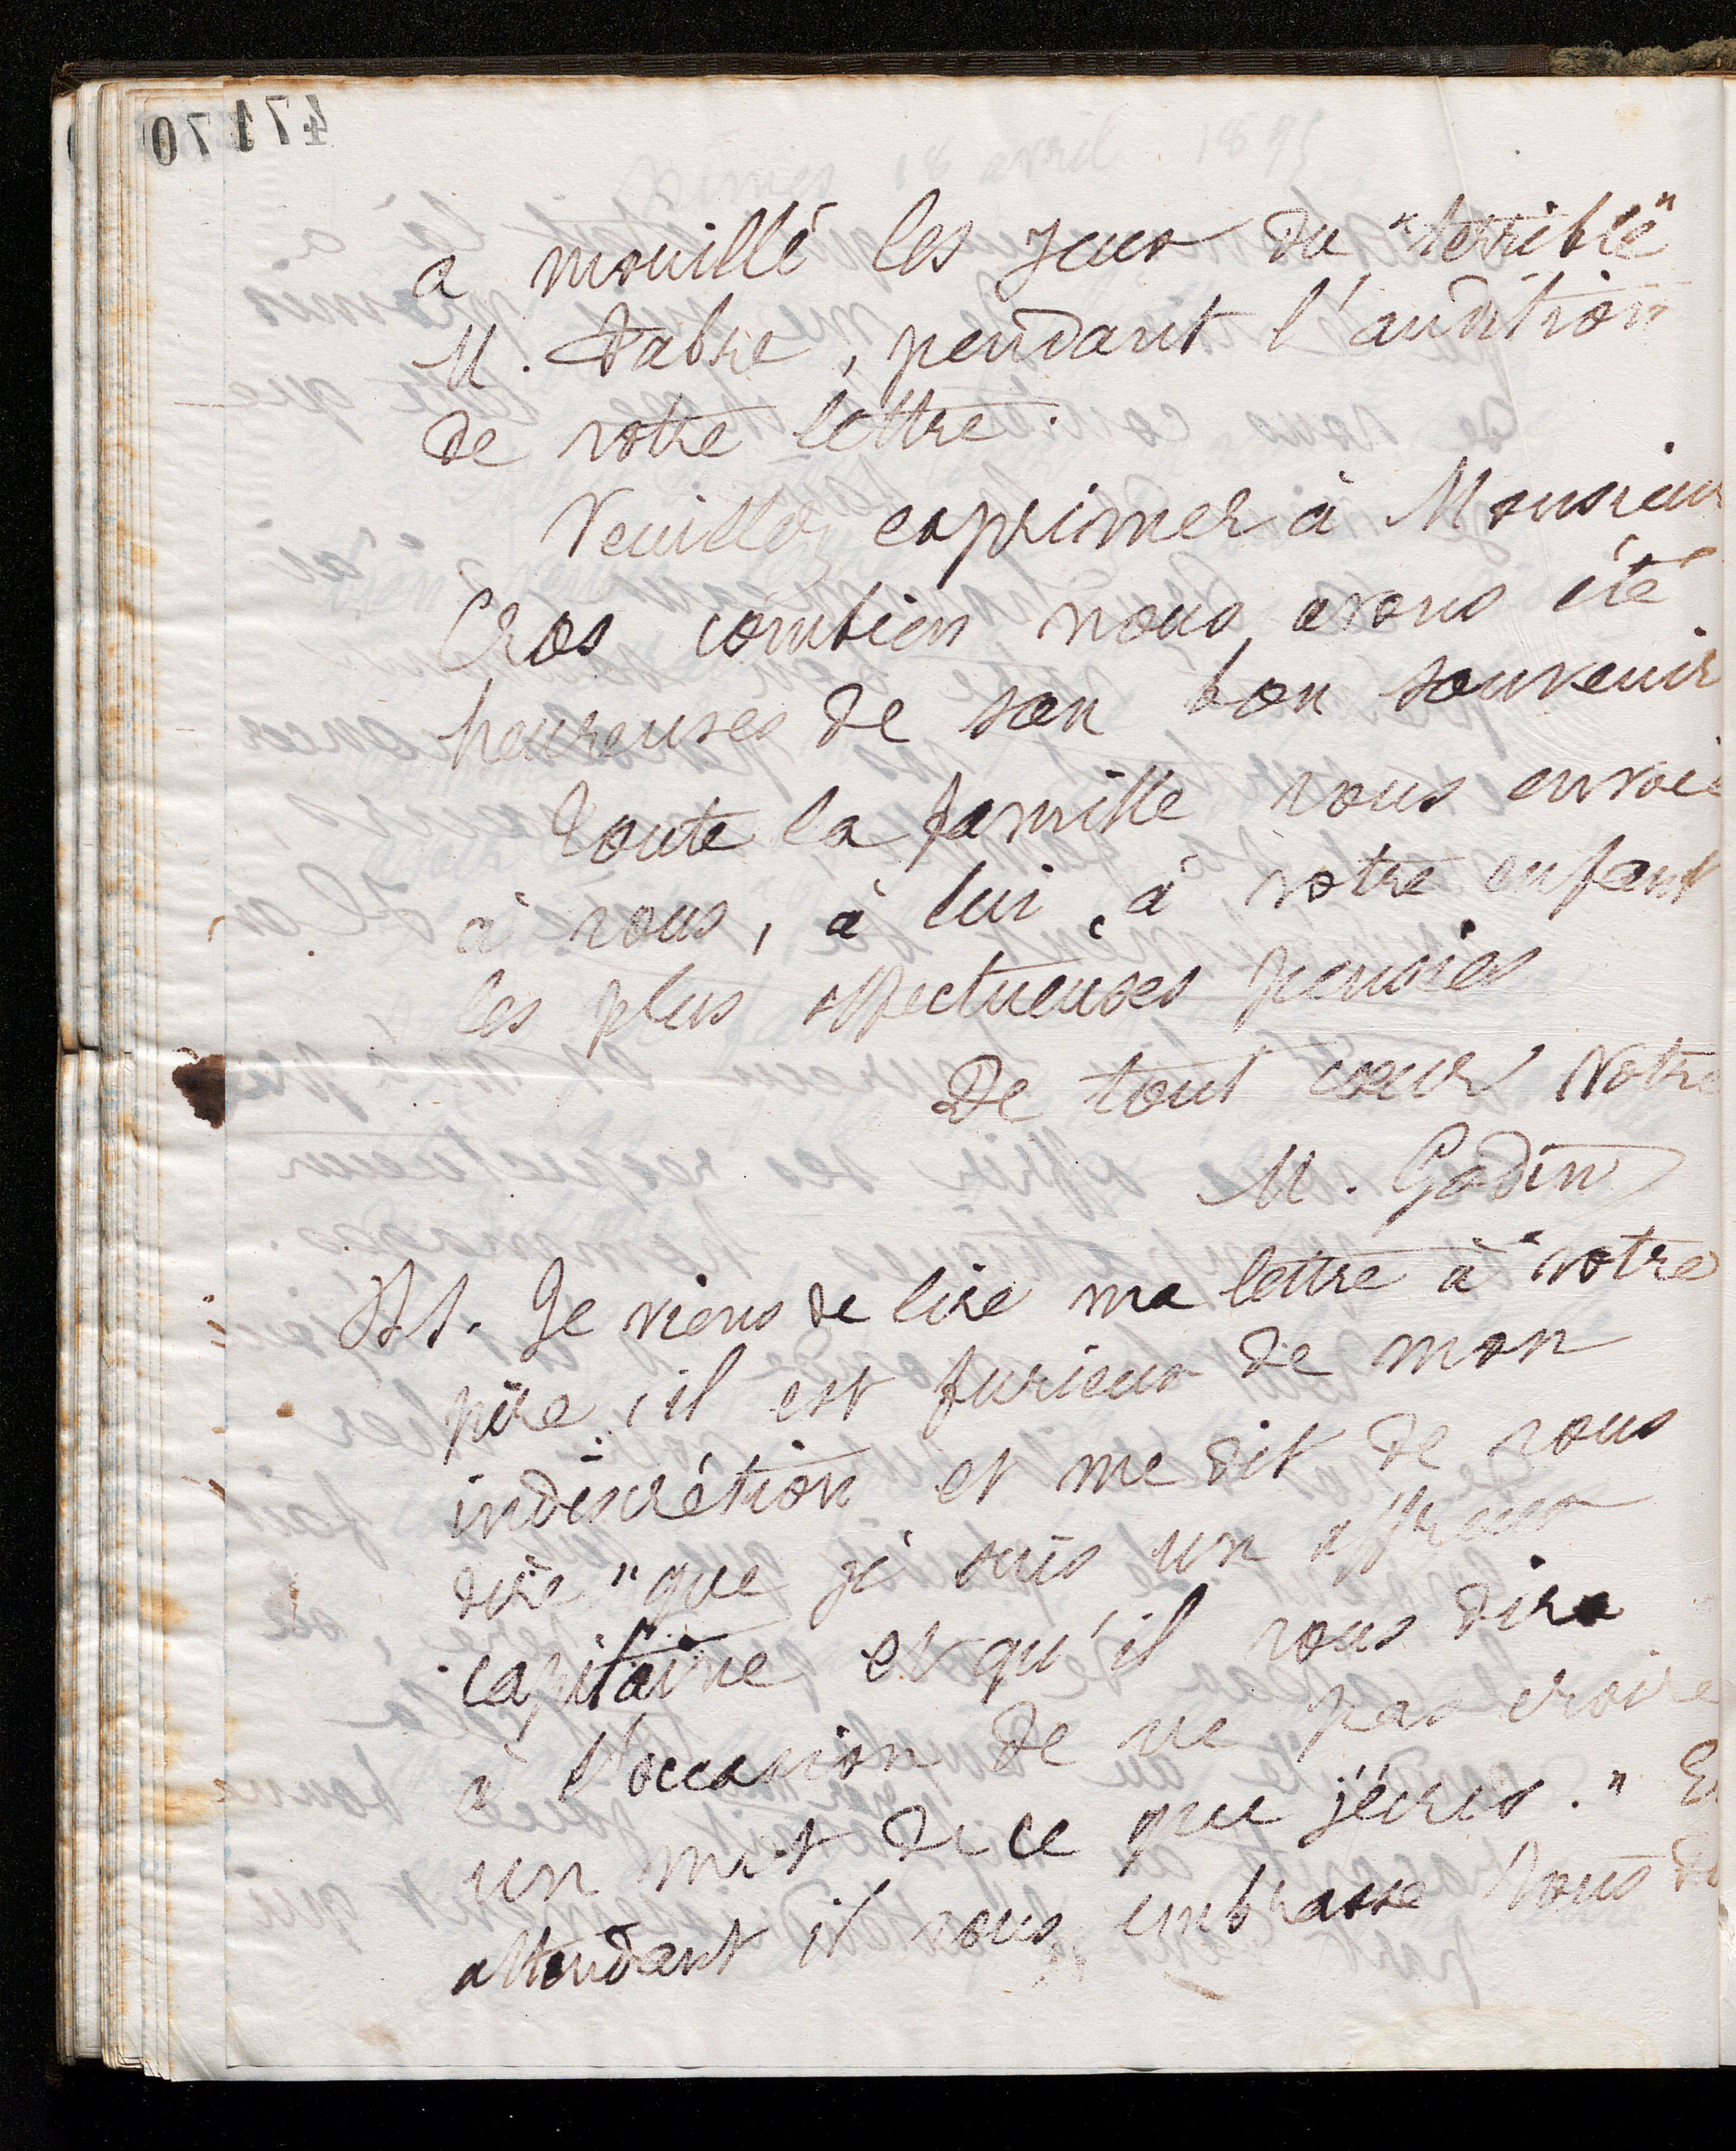 a mouillé les yeux du "terrible"
M. Fabre, pendant l'audition
de votre lettre.
Veuillez exprimer à Monsieur
Cros combien nous avons été
heureuses de son bon souvenir
Toute la famille vous envoie
à vous, à lui, à votre enfant
les plus affectueuses pensées
De tout cœur Votre
M. Godin
PS. Je viens de lire ma lettre à "votre
père, il est furieux de mon
indiscrétion et me dit de vous
dire "que je suis un affreux
capitaine et qu'il vous dira
à l'occasion de ne pas croire
un mot de ce que j'écris." En
attendant il vous embrasse Nous